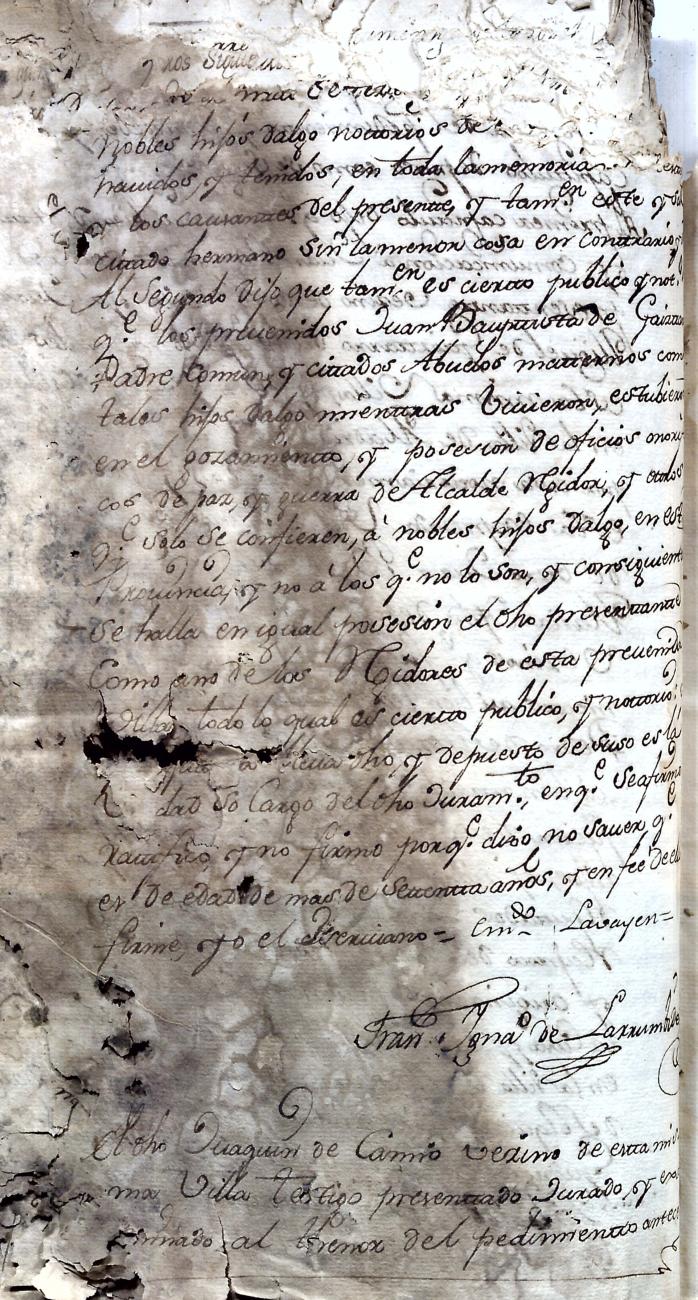 y nos
nobles hijos dalgo nottorios de
hauidos, y tenidos, en toda la memoria
los causantes del presente, y tam.en este y su
cittado hermano sin la menor cosa en contrario, y
Al segundo dijo que tam.en es cierto publico y not.
q.e los preuenidos Juan Bauptista de
Padre comun, y cittados Abuelos matternos com
tales hijos dalgo mienttras Vivieron, estubier
en el gozamiento, y posesion de oficios onori
cos de paz, y guerra de Alcalde Rejidor, y otros
q.e solo se confieren, à nobles hijos dalgo, en est
Prouincia, y no à los q.e no lo son, y consiguient
se halla en igual posesion el dho presentante
Como uno de los Rejidores de esta preuenida
Villa, todo lo qual es cierto publico, y nottorio
dho, y depuesto de suso es la
so Cargo del dho Juram.to, en q.e se afirmo
rattifico, y no firmo por q.e dijo no sauer, q.e
es de edad de mas de settentta años, y en fee de ello
firme, yo el Escriuano = Em.do Lavayen =
Fran. Ygna.o de Larrumbide
El dho Juaquin de Camio vezino de esta mis
ma Villa testigo presenttado Jurado, y exa
minado al thenor del pedimientto antece